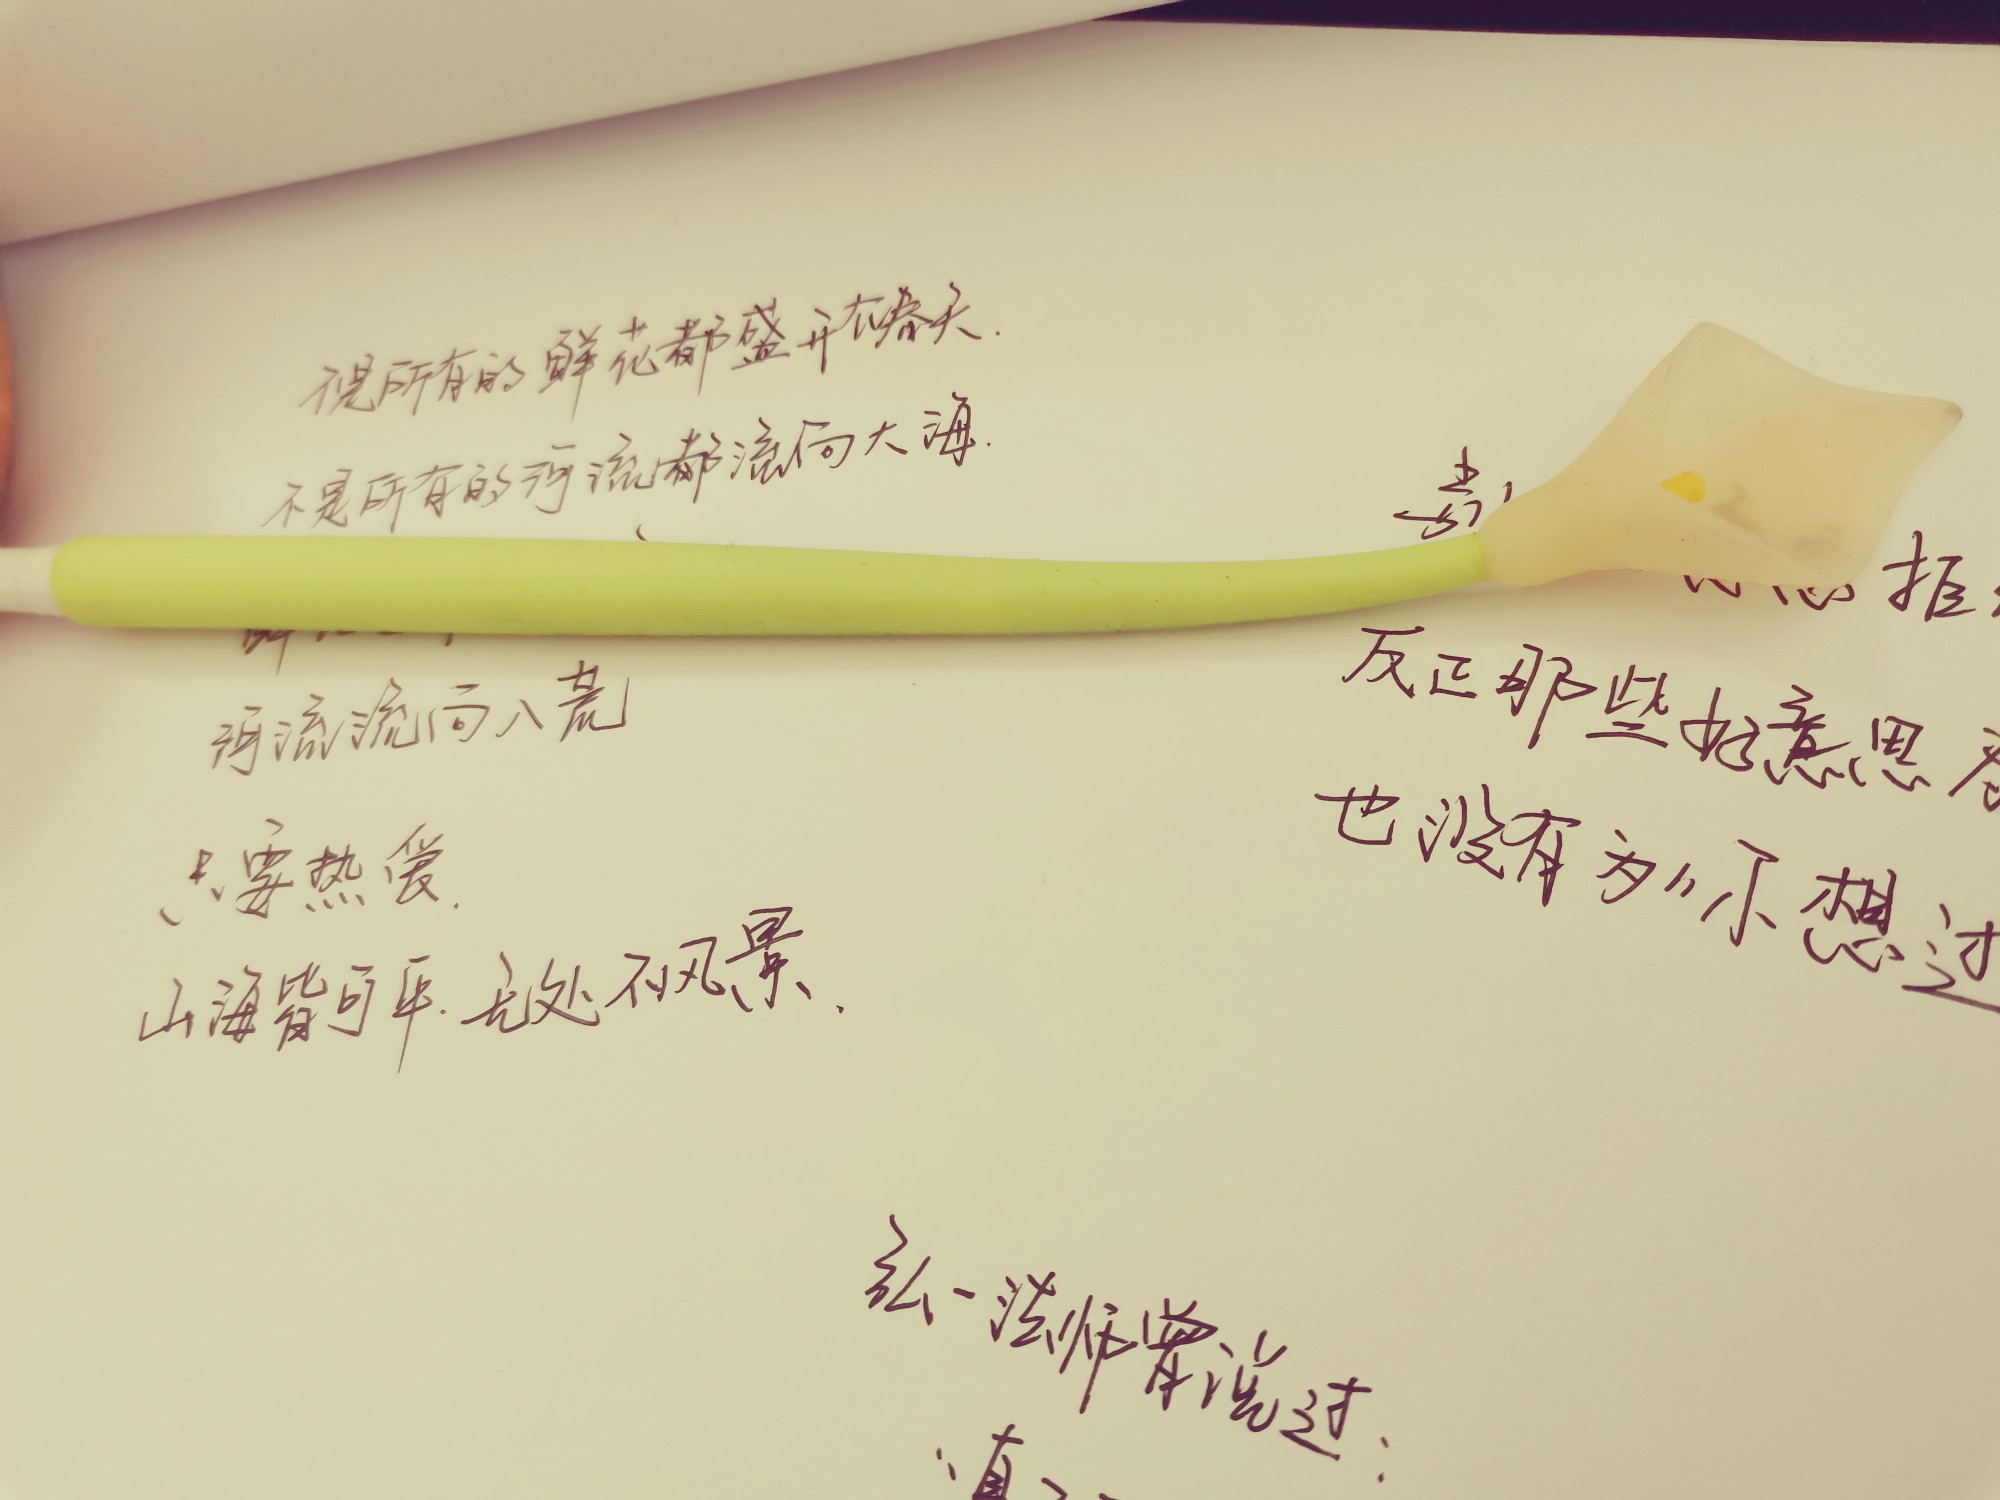 不是所有的鲜花都盛开在春天.
不是所有的河流都流向大海.
河流流向八荒
只要热爱.
山海皆可平.无处不风景.
反正那些好意思
也没有为"不想过
弘一法师曾说过: